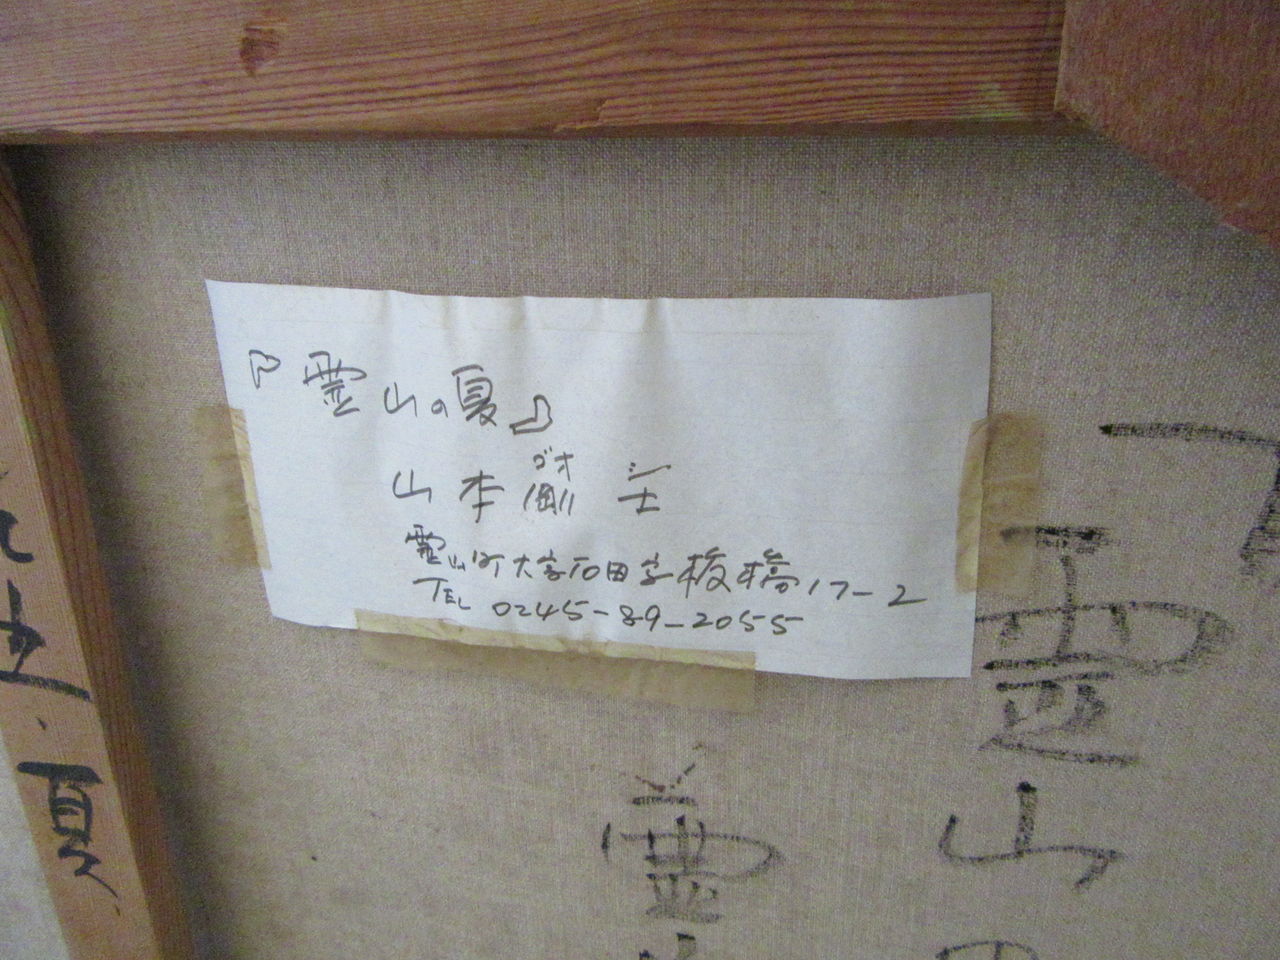 『霊山の夏』
ゴオ シ
山本剛士
霊山町大字石田字板橋17-2
TEL 0245-89-2055
「霊山
霊
夏